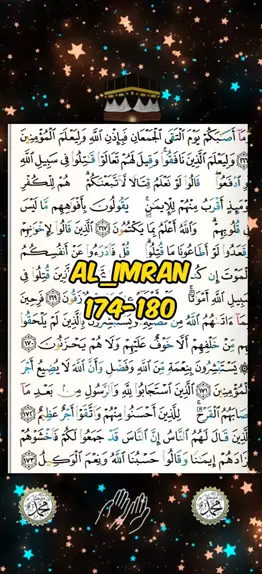 مَآ أَصَٰبَكُمْ يَوْمَ ٱلْتَقَى ٱلْجَمْعَانِ فَبِإِذْنِ ٱللَّهِ وَلِيَعْلَمَ ٱلْمُؤْمِنِينَ
١٦٦ وَلِيَعْلَمَ ٱلَّذِينَ نَافَقُوا۟ وَقِيلَ لَهُمْ تَعَالَوْا۟ قَٰتِلُوا۟ فِى سَبِيلِ ٱللَّهِ
ٱدْفَعُوا۟ قَالُوا۟ لَوْ نَعْلَمُ قِتَالًا لَّٱتَّبَعْنَٰكُمْ هُمْ لِلْكُفْرِ
أَقْرَبُ مِنْهُمْ لِلْإِيمَٰنِ يَقُولُونَ بِأَفْوَٰهِهِم مَّا لَيْسَ
قُلُوبِهِمْ وَٱللَّهُ أَعْلَمُ بِمَا يَكْتُمُونَ ١٦٧ ٱلَّذِينَ قَالُوا۟ لِإِخْوَٰنِهِمْ
وَقَعَدُوا۟ لَوْ أَطَاعُونَا مَا قُتِلُوا۟ قُلْ فَٱدْرَءُوا۟ عَنْ أَنفُسِكُمُ
ٱلْمَوْتَ إِن
AL_IMRAN
ٱلَّذِينَ قُتِلُوا۟ فِى
سَبِيلِ ٱللَّهِ أَمْوَٰتًۢا
174-180
١٦٩ فَرِحِينَ
بِمَآ ءَاتَىٰهُمُ ٱللَّهُ مِن فَضْلِهِۦ وَيَسْتَبْشِرُونَ بِٱلَّذِينَ لَمْ يَلْحَقُوا۟
مِّنْ خَلْفِهِمْ أَلَّا خَوْفٌ عَلَيْهِمْ وَلَا هُمْ يَحْزَنُونَ ١٧٠
يَسْتَبْشِرُونَ بِنِعْمَةٍ مِّنَ ٱللَّهِ وَفَضْلٍ وَأَنَّ ٱللَّهَ لَا يُضِيعُ أَجْرَ
ٱلْمُؤْمِنِينَ ١٧١ ٱلَّذِينَ ٱسْتَجَابُوا۟ لِلَّهِ وَٱلرَّسُولِ مِنۢ بَعْدِ مَآ
أَصَابَهُمُ ٱلْقَرْحُ لِلَّذِينَ أَحْسَنُوا۟ مِنْهُمْ وَٱتَّقَوْا۟ أَجْرٌ عَظِيمٌ ١٧٢
ٱلَّذِينَ قَالَ لَهُمُ ٱلنَّاسُ إِنَّ ٱلنَّاسَ قَدْ جَمَعُوا۟ لَكُمْ فَٱخْشَوْهُمْ
فَزَادَهُمْ إِيمَٰنًا وَقَالُوا۟ حَسْبُنَا ٱللَّهُ وَنِعْمَ ٱلْوَكِيلُ ١٧٣
محمد
محمد